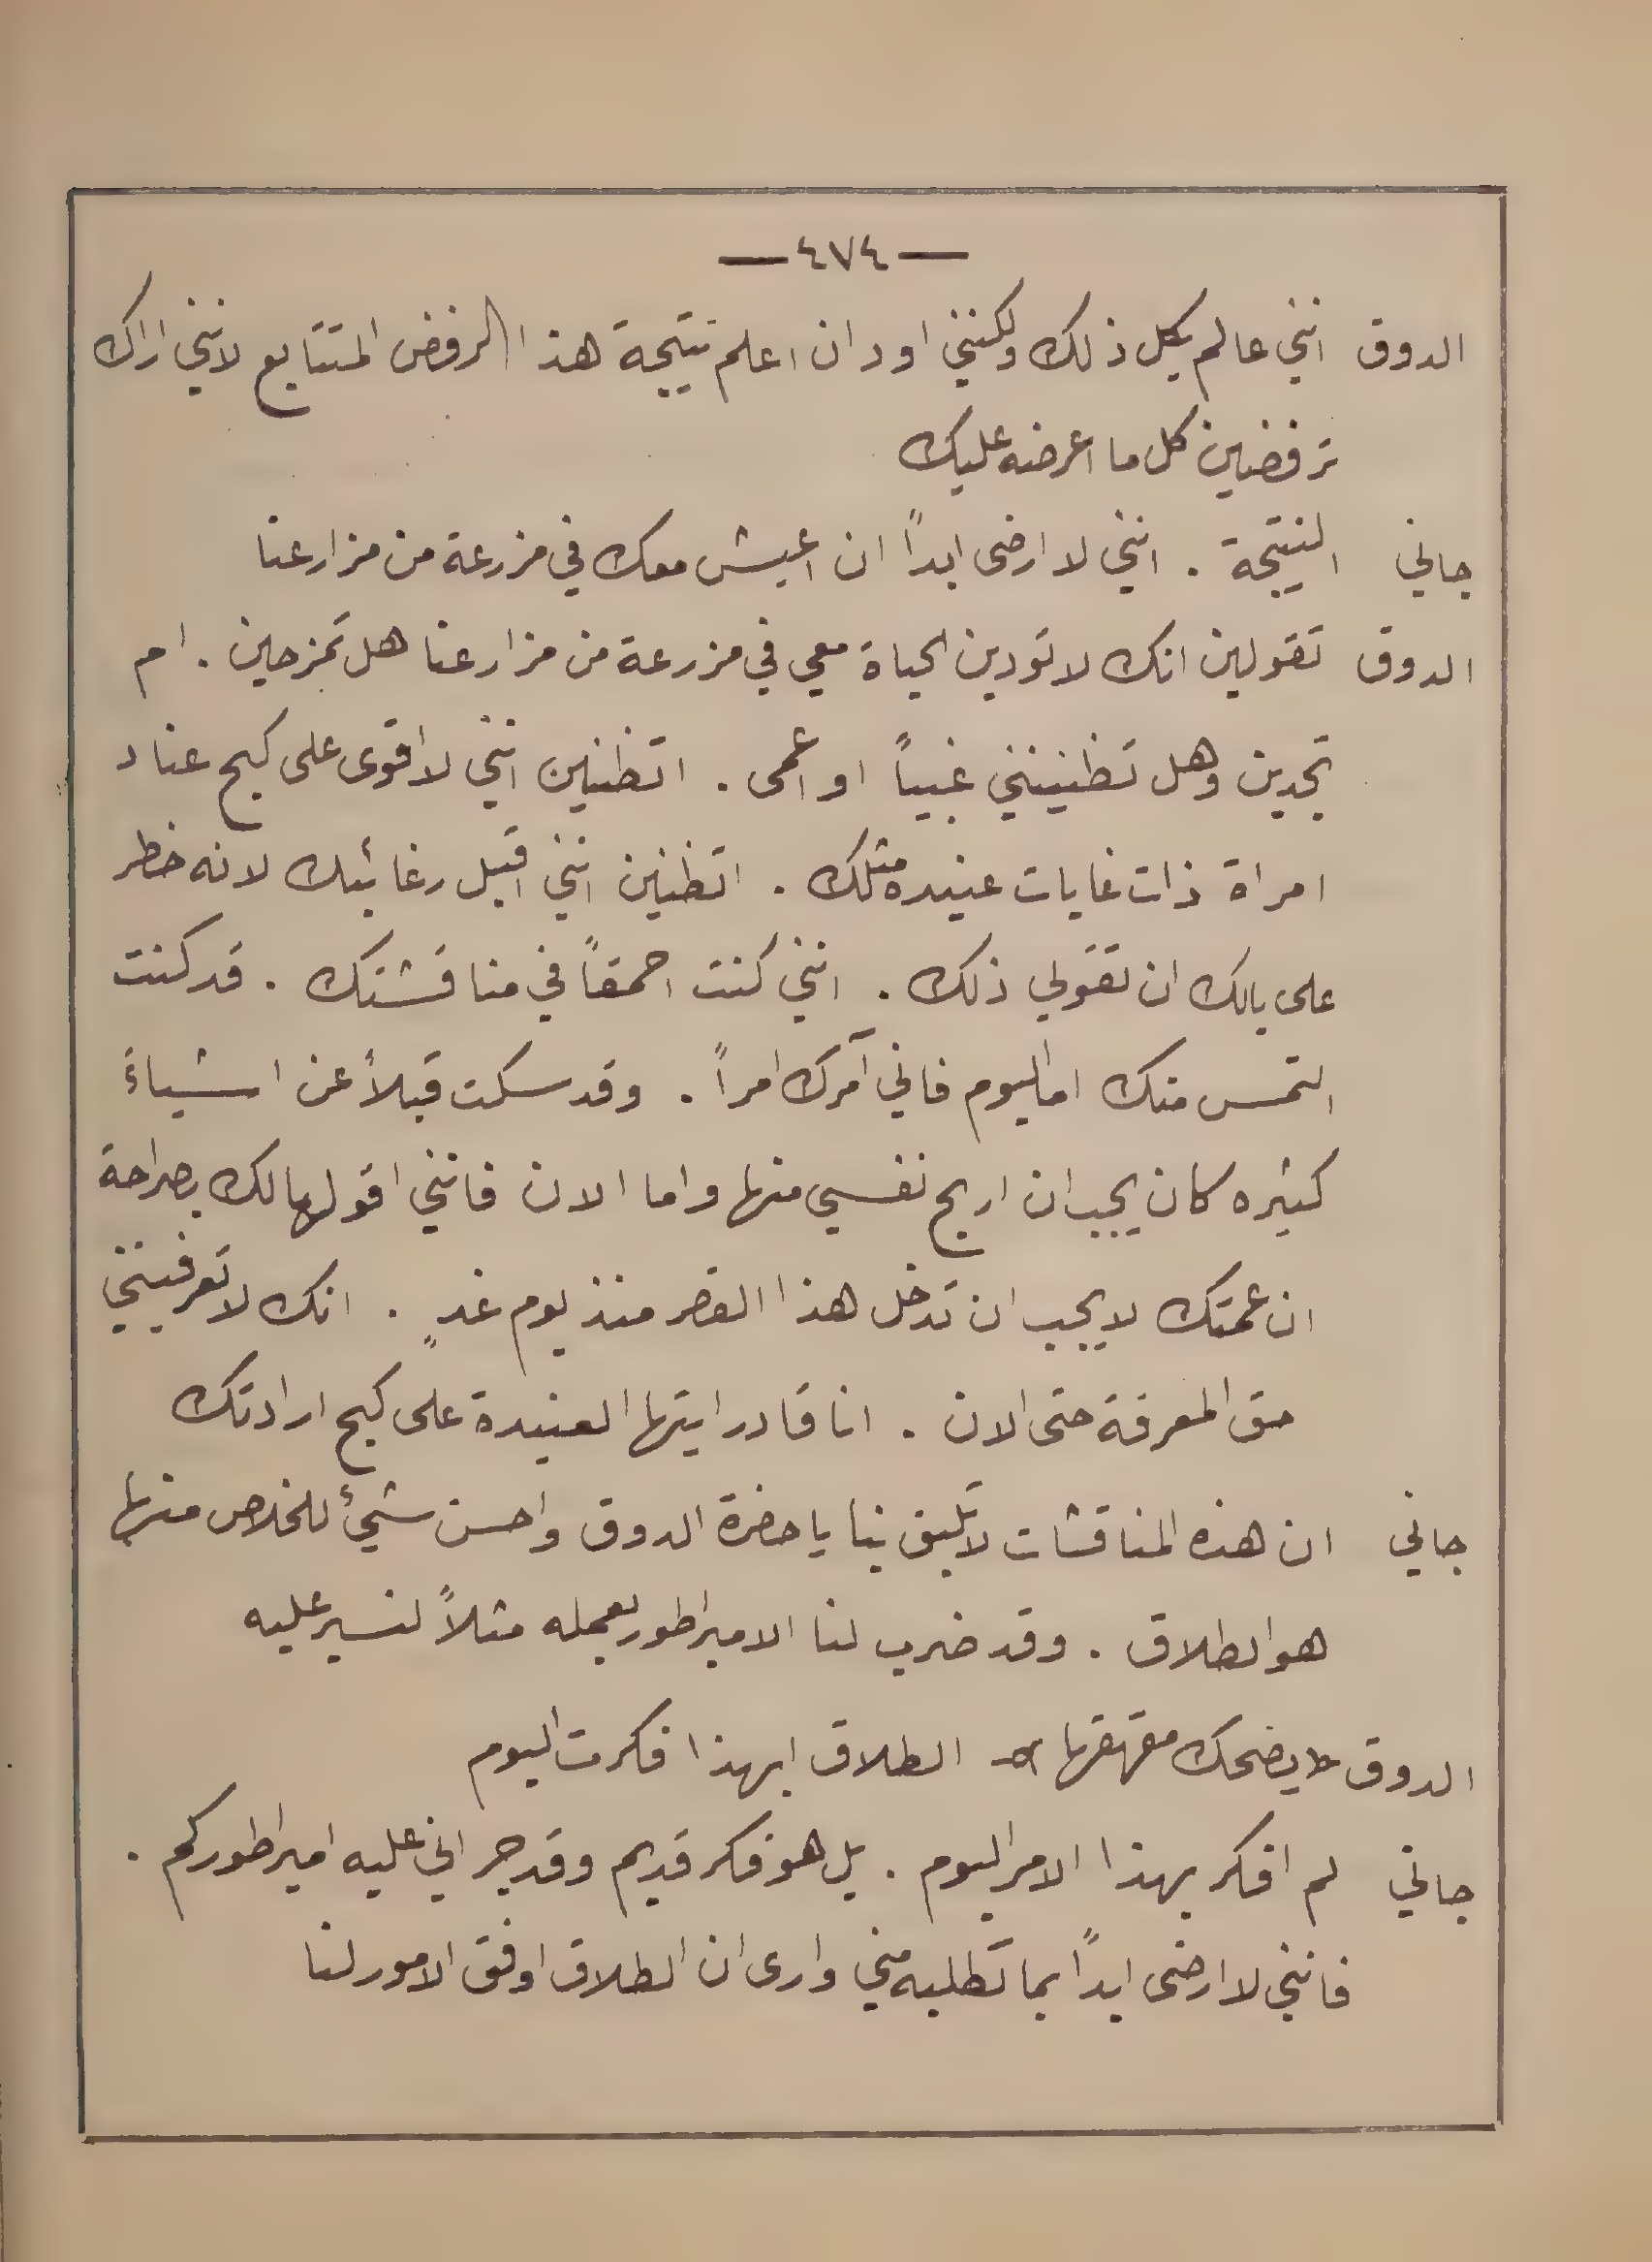 — ٤٧٤ —
الدوق انني عالم بكل ذلك ولكنني اود ان اعلم نتيجة هذا الرفض المتتابع لانني اراك
ترفضين كل ما اعرضه عليك
جاني النتيجة . انني لا ارضى ابداً ان اعيش معك في مزرعة من مزارعنا
الدوق تقولين انك لا تودين الحياة معي في مزرعة من مزارعنا هل تمزحين . ام
تجدين وهل تظنينني غبياً او اعمى . اتظنين انني لا اقوى على كبح عناد
امراة ذات غايات عنيده مثلك . اتظنين انني اقبل رغائبك لانه خطر
على بالك ان تقولي ذلك . انني كنت احمقاً في مناقشتك . قد كنت
التمس منك اما اليوم فاني آمرك امراً . وقد سكت قبلاً عن اشياءً
كثيره كان يجب ان اريح نفسي منها واما الان فانني اقولها لك بصراحة
ان عمتك لا يجب ان تدخل هذا القصر منذ يوم غدٍ . انك لا تعرفينني
حق المعرفة حتى الان . انا قادر ايتها العنيدة على كبح ارادتك
جاني ان هذه المناقشات لا تليق بنا يا حضرة الدوق واحسن شيئ للخلاص منها
هو الطلاق . وقد ضرب لنا الامبراطور بعمله مثلاً لنسير عليه
الدوق يضحك مقهقها الطلاق ابهذا فكرت اليوم
جاني لم افكر بهذا الامر اليوم . بل هو فكر قديم وقد جراني عليه امبراطوركم .
فانني لا ارضى ابداً بما تطلبه مني وارى ان الطلاق اوفق الامور لنا